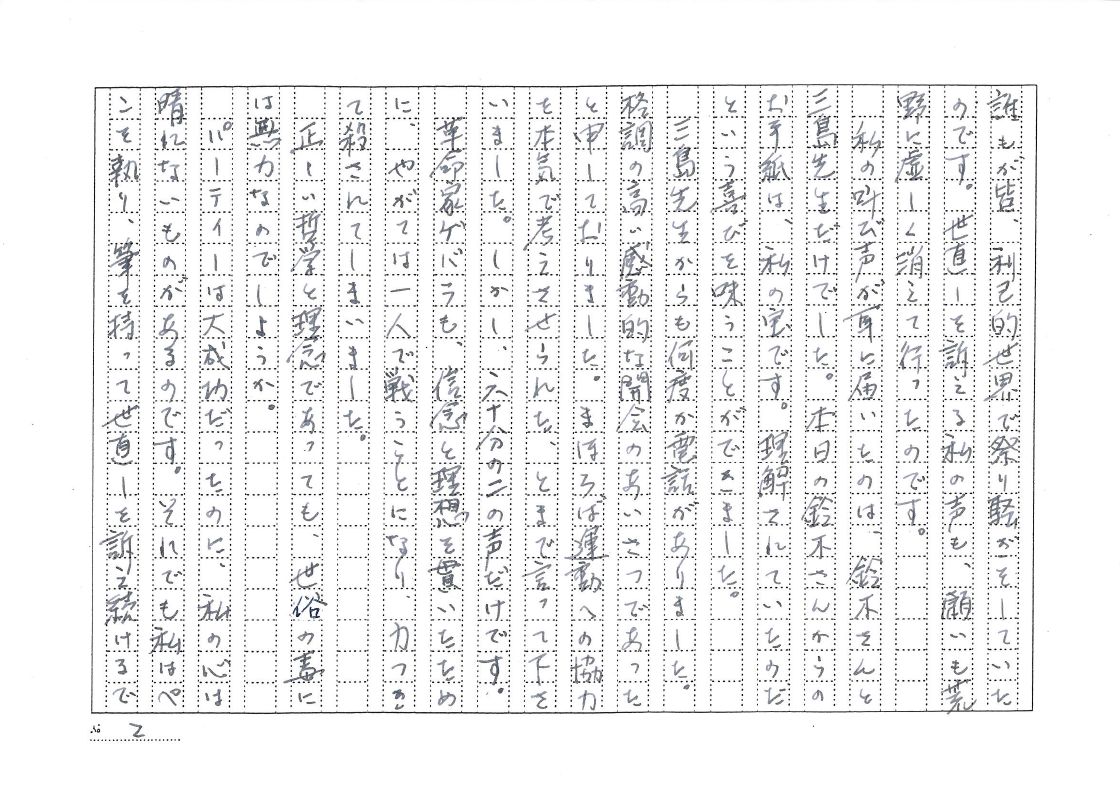 誰もが皆、利己的世界で祭り騒がをしていた
のです。世直しを訴える私の声も、願いも荒
野に虚しく消えて行ったのです。
私の叫び声が耳に届いたのは、鈴木さんと
三島先生だけでした。本日の鈴木さんからの
お手紙は、私の宝です。理解されていたのだ
という喜びを味うことができました。
三島先生からも何度か電話がありました。
格調の高い感動的な開会のあいさつであった
と申しておりました。まほろば運動への協力
を本気で考えさせられた、とまで言って下さ
いました。しかし、六十分の二の声だけです。
革命家ゲバラも、信念と理想を貫いたため
に、やがては一人で戦うことになり、力つき
て殺されてしまいました。
正しい哲学と理念であっても、世俗の毒に
は無力なのでしようか。
パーティーは大成功だったのに、私の心は
晴れないものがあるのです。それでも私はペ
ンを執り、筆を持って世直しを訴え続けるで
№ 2